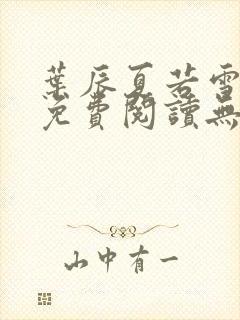 葉辰夏若雪
免費閱讀無
山中有一